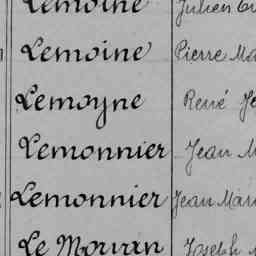 Lemoine Julien
Lemoine Pierre
Lemoyne René
Lemonnier Jean
Lemonnier Jean
Le Morvan Joseph